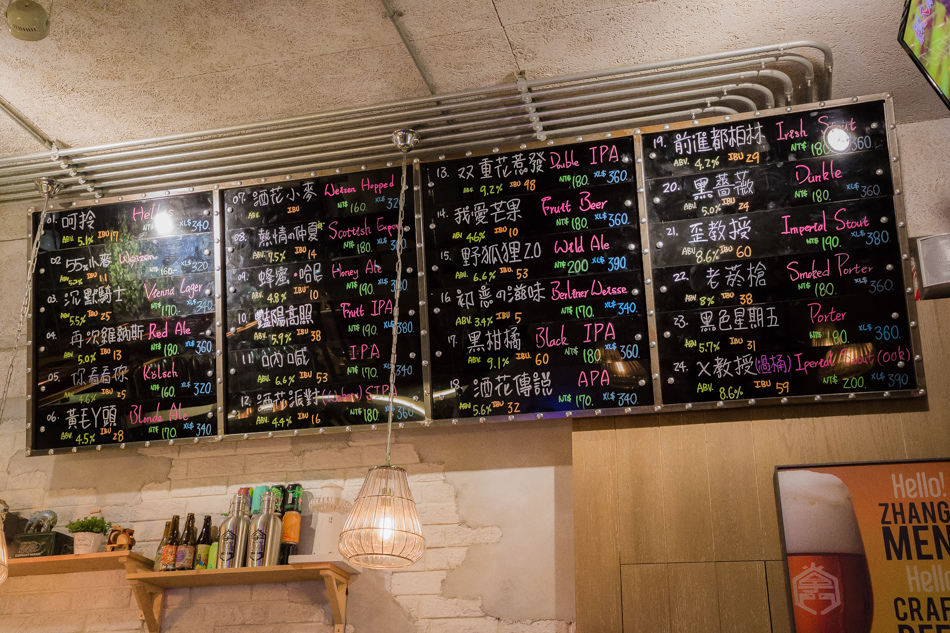 01. 呵拎
ABV. 5.1% IBU 17 XL$ 340
02 55小麥 NT$ 160. XL$ 320
03. 沉默騎士 Vienna Lager
ABV. 5.5% IBU 25 NT$ 170. XL$ 340
04. Red Ale
ABV. 5.0% IBU 13 NT$ 180. XL$ 360
05. 你看看你 Kölsch
NT$ 160. XL$ 320
06. 黃毛丫頭 Blonde Ale
ABV. 4.5% IBU 28 NT$ 170 XL$ 340
07. 酒花小麥 Weizen Hopped
ABV. IBU NT$ 160.
08. 熱情の仲夏 Scottish Expor
ABV. IBU 14 NT$ 180.
09. 蜂蜜·哈尼 Honey Ale
ABV. 4.8% IBU 10 NT$ 190.
10. 豔陽高照 Fruit IPA
ABV. 5.9% IBU 38 NT$ 190.
11. 吶喊 IPA
ABV. 6.6% IBU 53 NT$ 170.
12. 酒花派對
ABV. 4.4% IBU 16 NT$ 180 XL$ 360
13. 双重花惹發 Double IPA
ABV. 9.2% IBU 48 NT$ 180. XL$ 360.
14. 我愛芒果 Fruit Beer
ABV. 4.6% IBU 10 NT$ 180. XL$ 360.
15. 野狐狸2.0 Wild Ale
ABV. 6.6% IBU 53 NT$ 200 XL$ 390.
16. 初戀の滋味 Berliner Weisse
ABV. 3.4% IBU 5 NT$ 170. XL$ 340.
17. 黑柑橘 Black IPA
ABV. 9.1% IBU 60 NT$ 180 XL$ 360.
18. 酒花傳說 APA
ABV. 5.6% IBU 32 NT$ 170. XL$ 340.
19. 前進都柏林 Irish Stout
ABV. 4.2% IBU 29 NT$ 180. XL$ 360.
20. 黑薔薇 Dunkle
ABV. 5.0% IBU 24 NT$ 180. XL$ 360.
21. 歪教授 Imperial Stout
ABV. 8.6% IBU 60 NT$ 190. XL$ 380.
22. 老菸槍 Smoked Porter
ABV. 8% IBU 38 NT$ 180. XL$ 360.
23. 黑色星期五 Porter
ABV. 5.7% IBU 31 NT$ 180. XL$ 360.
24. X教授(過桶)
ABV. 8.6% IBU 59 NT$ 200. XL$ 390.
Hello!
ZHANG
MEN
Hello
CRAF